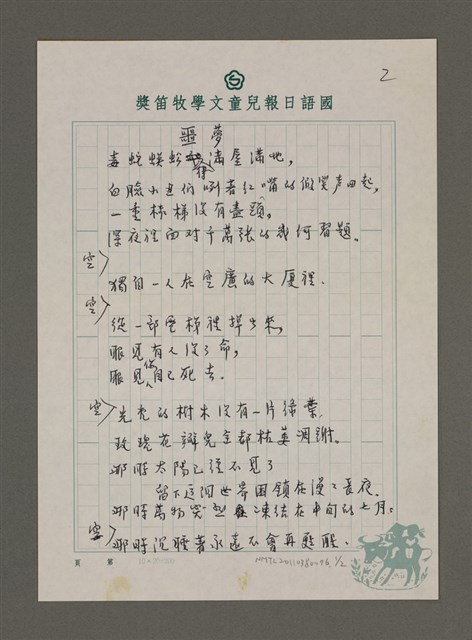 2
獎笛牧學文童兒報日語國
噩夢
毒蛇蜈蚣爬滿屋滿地,
白臉小丑們咧著紅嘴的假笑声四起,
一重梯沒有盡頭,
深夜裡面对千萬張的幾何習題。
空>
獨自一人在空廣的大厦裡.
空>
從一部電梯裡掉出來,
眼見有人沒了命,
眼見你自己死去.
空>
光禿的樹木沒有一片綠葉,
玫瑰花瓣兒全都枯萎凋謝。
那時太陽已經不見了
留下這個世界困鎖在漫漫長夜.
那時萬物凍結在的七月。
空>
那時沉睡著永遠不會再甦醒。
頁 第
NMTL20110380096 1/2